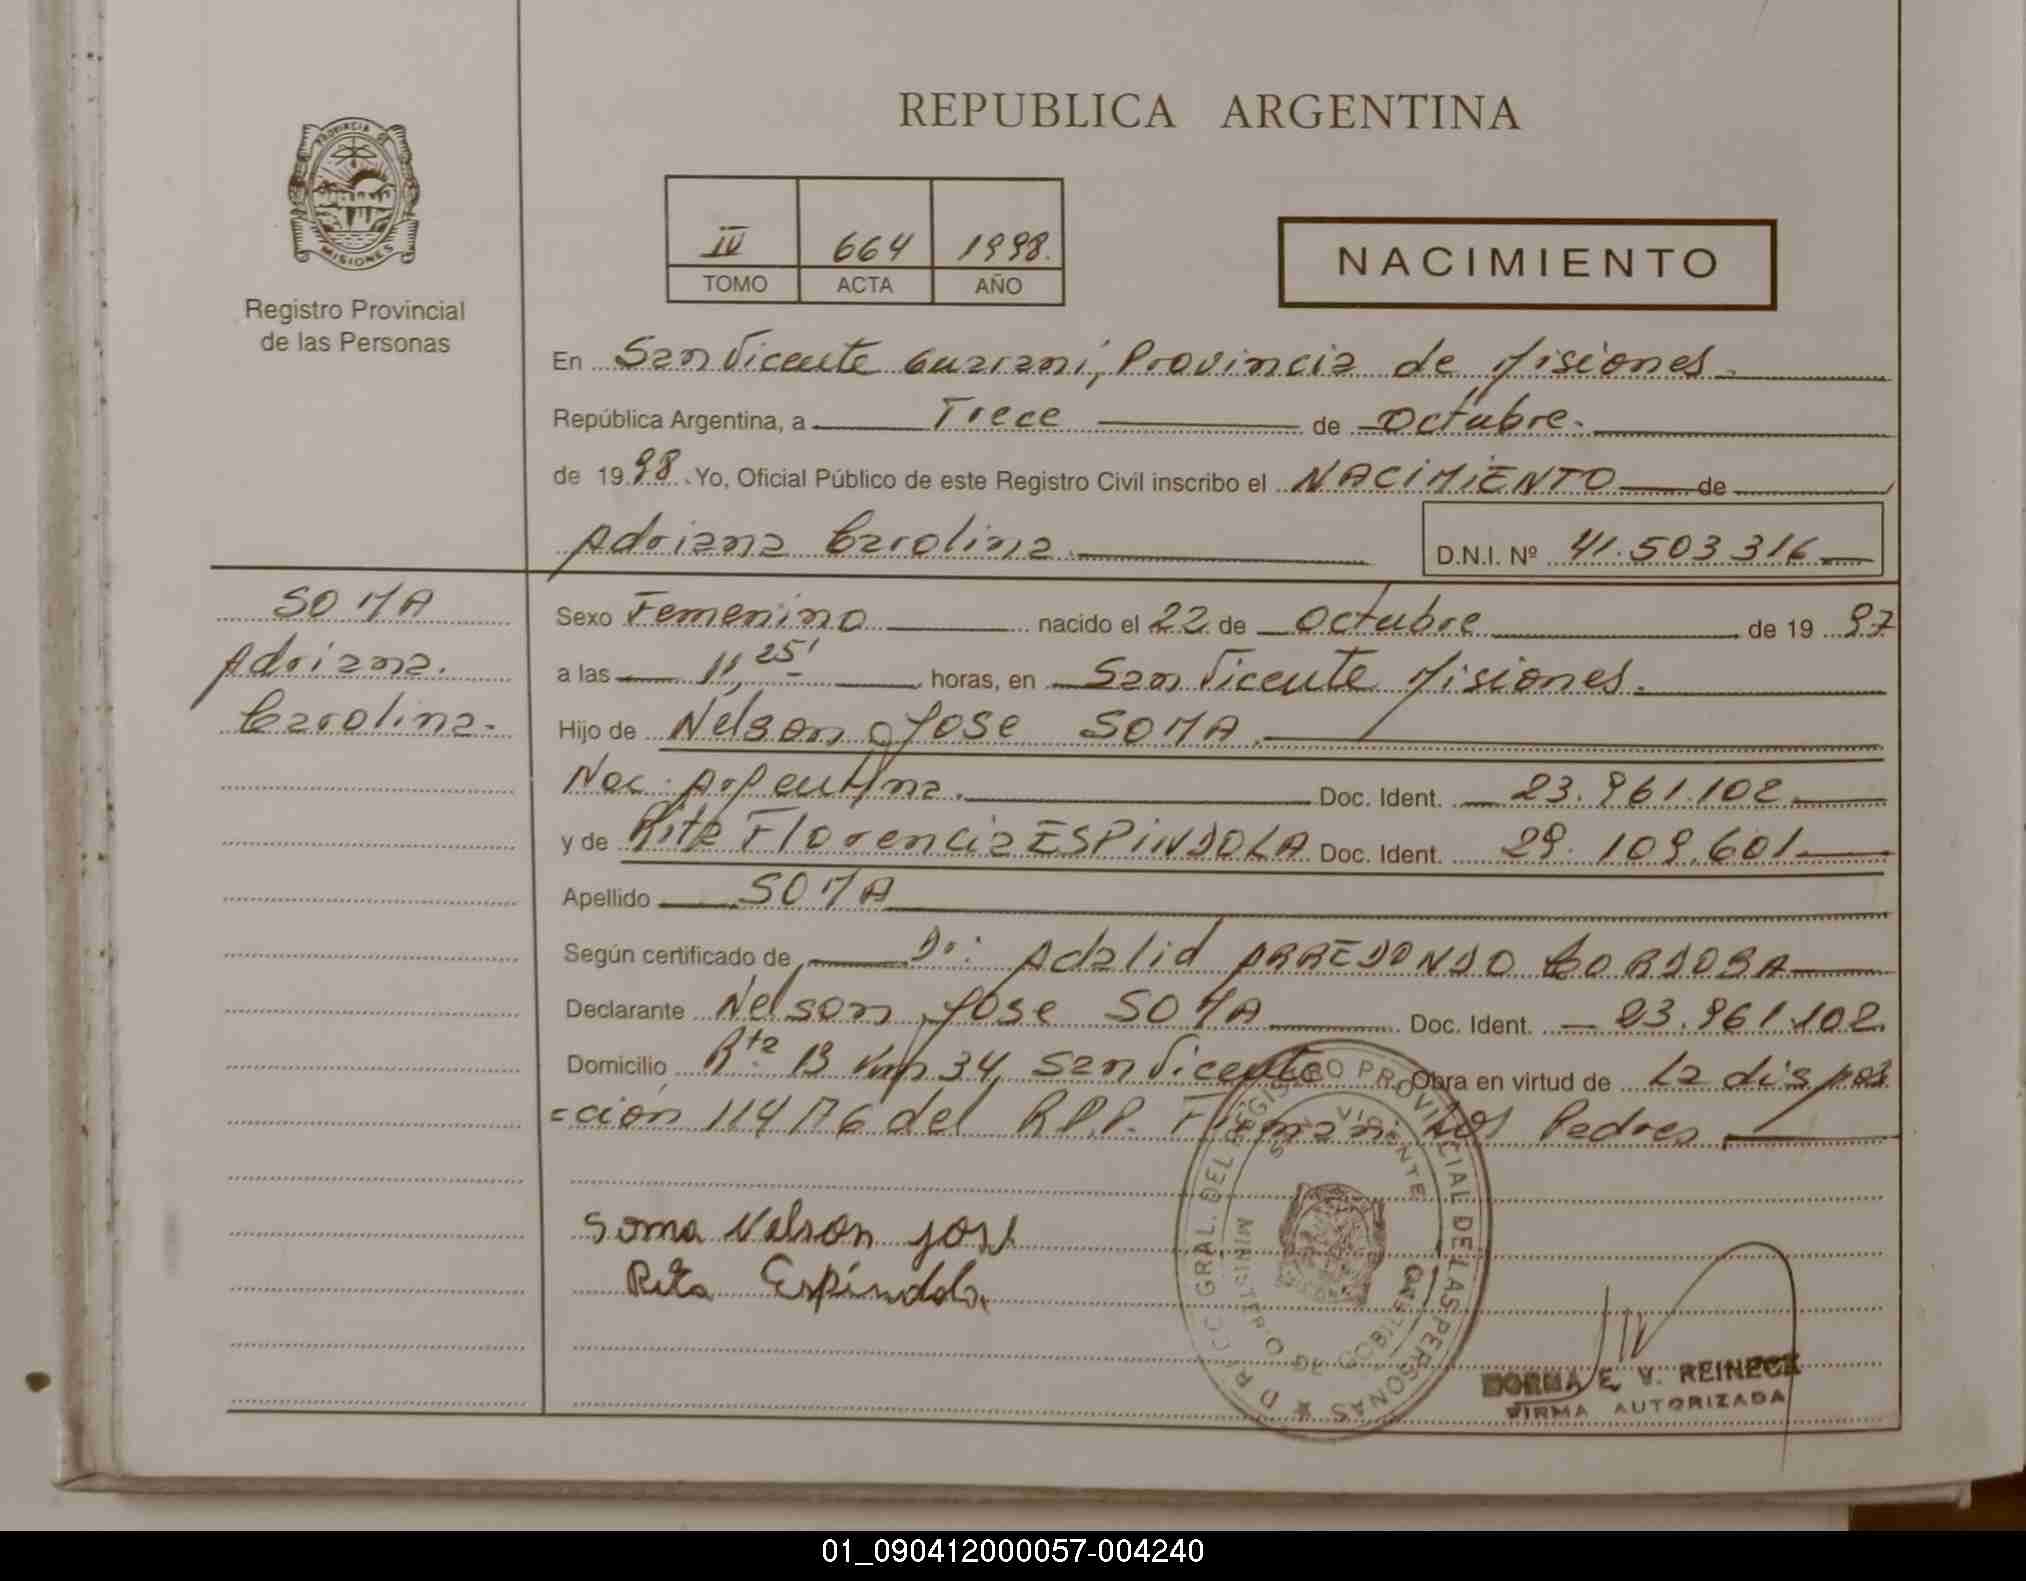 REPUBLICA ARGENTINA
PROVINCIA DE
MISIONES
Registro Provincial
de las Personas
IV 664 1998.
TOMO ACTA AÑO
NACIMIENTO
En San Vicente Guaraní, Provincia de Misiones.
República Argentina, a Trece de Octubre.
de 1998. Yo, Oficial Público de este Registro Civil inscribo el NACIMIENTO de
Adriana Carolina. D.N.I. Nº 41.503.316
SOMA
Adriana.
Carolina.
Sexo Femenino nacido el 22 de Octubre de 1997
a las 11,25' horas, en San Vicente Misiones.
Hijo de Nelson Jose SOMA.
Nac. Argentina. Doc. Ident. 23.961.102.
y de Rita Florencia ESPINDOLA Doc. Ident. 29.109.601
Apellido SOMA
Según certificado de Dr: Adalid ARREDONDO CORDOBA
Declarante Nelson Jose SOMA Doc. Ident. 23.961.102.
Domicilio Rta 13 Km 34, San Vicente Obra en virtud de La dispos
=ción 114/76 del R.P.P. Firman Los Padres.
Soma Nelson José
Rita Espíndola
DIRECC. GRAL. DEL REGISTRO PROVINCIAL DE LAS PERSONAS
SAN VICENTE
MINISTERIO DE GOBIERNO
NORMA E. V. REINECK
FIRMA AUTORIZADA
01_090412000057-004240